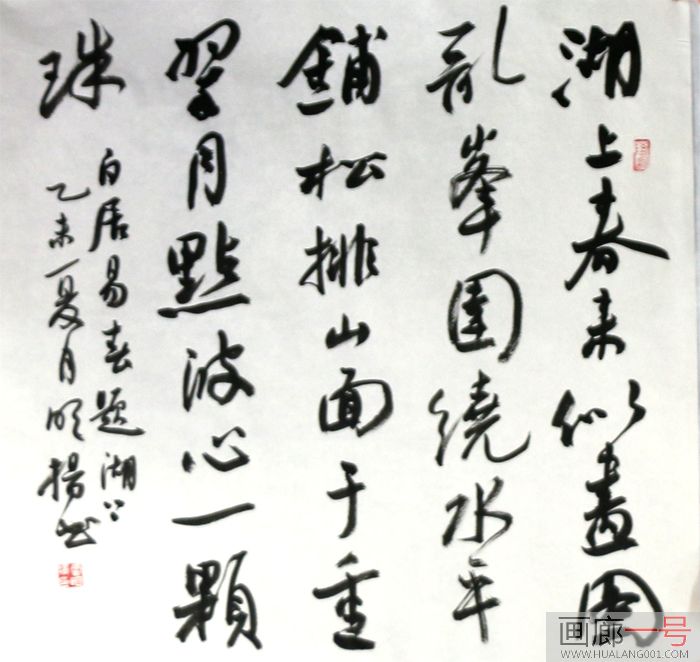 湖上春来似畫圖
乱峯圍繞水平
鋪松排山面千重
翠月點波心一顆
珠
白居易春題湖上
乙未夏月明揚书
画廊一号
WWW.HUALANG001.COM